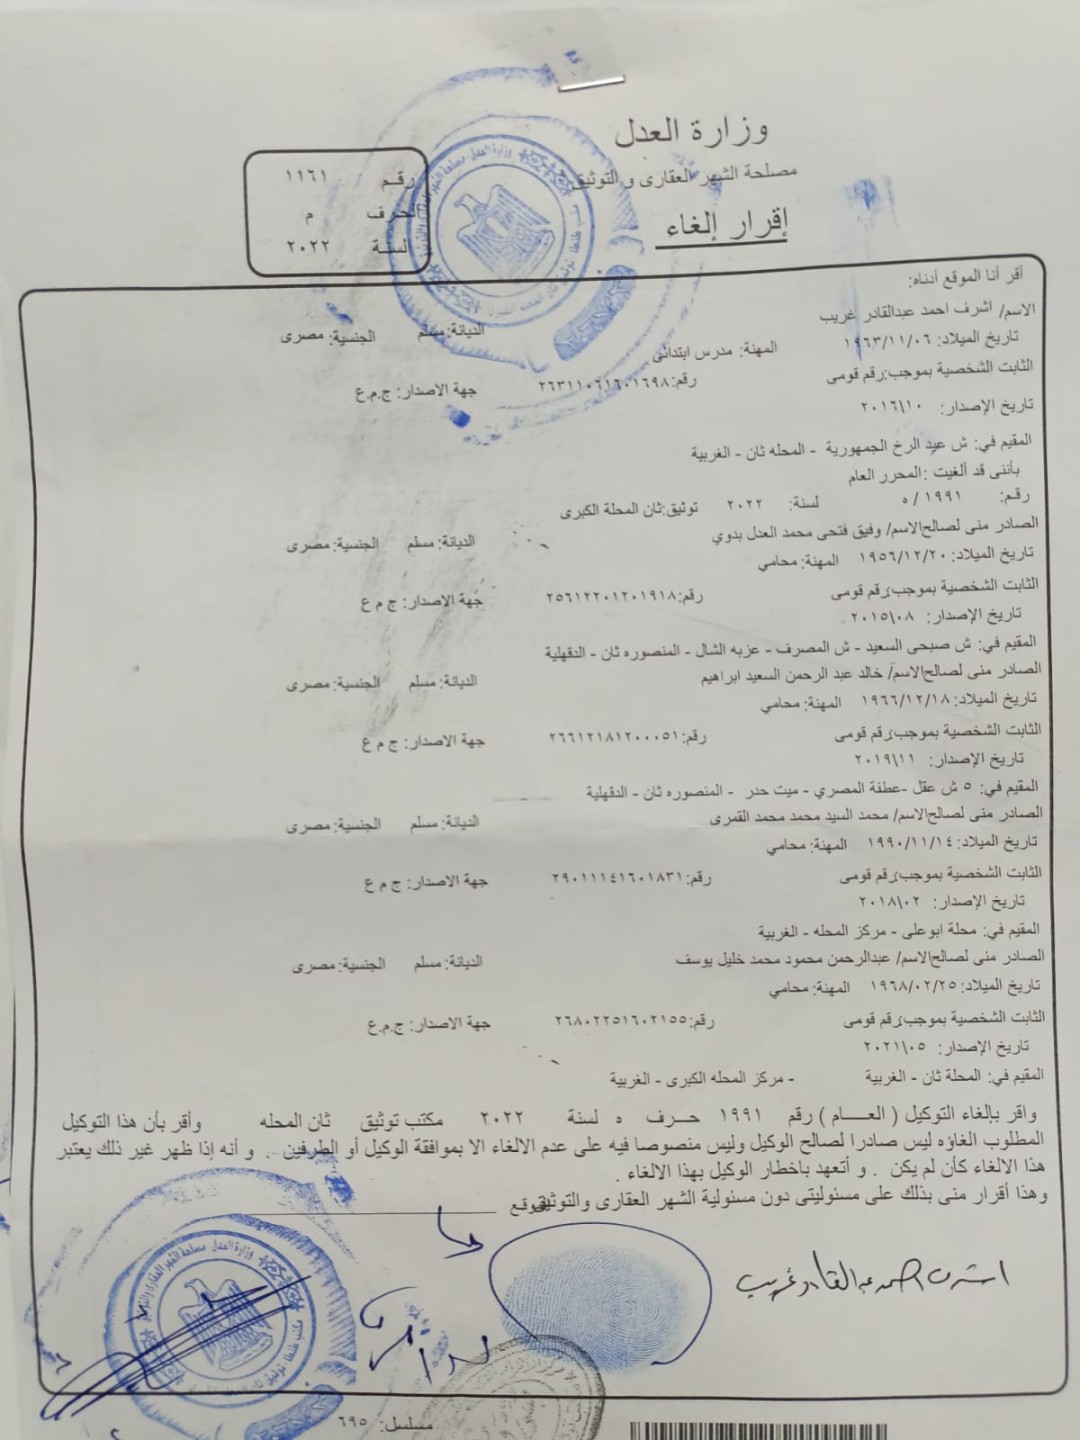 وزارة العدل
مصلحة الشهر العقارى و التوثيق
إقرار إلغاء
رقم ١١٦١
الحرف م
لسنة ٢٠٢٢
أقر أنا الموقع أدناه:
الاسم/ اشرف احمد عبدالقادر غريب الديانة: مسلم الجنسية: مصرى
تاريخ الميلاد: ١٩٦٣/١١/٠٦ المهنة: مدرس ابتدائى
الثابت الشخصية بموجب:رقم قومى رقم:٢٦٣١١٠٦١٦٠١٦٩٨ جهة الاصدار: ج.م.ع
تاريخ الإصدار: ٢٠١٦\١٠
المقيم في: ش عيد الرخ الجمهورية - المحله ثان - الغربية
بأننى قد ألغيت :المحرر العام
رقم: ١٩٩١ /٥ لسنة: ٢٠٢٢ توثيق:ثان المحلة الكبرى
الصادر منى لصالح/الاسم/ وفيق فتحى محمد العدل بدوي الديانة: مسلم الجنسية: مصرى
تاريخ الميلاد: ١٩٥٦/١٢/٢٠ المهنة: محامي
الثابت الشخصية بموجب:رقم قومى رقم:٢٥٦١٢٢٠١٢٠١٩١٨ جهة الاصدار: ج م ع
تاريخ الإصدار: ٢٠١٥\٠٨
المقيم في: ش صبحى السعيد - ش المصرف - عزبه الشال - المنصوره ثان - الدقهلية
الصادر منى لصالح/الاسم/ خالد عبد الرحمن السعيد ابراهيم الديانة: مسلم الجنسية: مصرى
تاريخ الميلاد: ١٩٦٦/١٢/١٨ المهنة: محامي
الثابت الشخصية بموجب:رقم قومى رقم:٢٦٦١٢١٨١٢٠٠٠٥١ جهة الاصدار: ج م ع
تاريخ الإصدار: ٢٠١٩\١١
المقيم في: ٥ ش عقل -عطفة المصري - ميت حدر - المنصوره ثان - الدقهلية
الصادر منى لصالح/الاسم/ محمد السيد محمد محمد القمرى الديانة: مسلم الجنسية: مصرى
تاريخ الميلاد: ١٩٩٠/١١/١٤ المهنة: محامي
الثابت الشخصية بموجب:رقم قومى رقم:٢٩٠١١١٤١٦٠١٨٣١ جهة الاصدار: ج م ع
تاريخ الإصدار: ٢٠١٨\٠٢
المقيم في: محلة ابوعلى - مركز المحله - الغربية
الصادر منى لصالح/الاسم/ عبدالرحمن محمود محمد خليل يوسف الديانة: مسلم الجنسية: مصرى
تاريخ الميلاد: ١٩٦٨/٠٢/٢٥ المهنة: محامي
الثابت الشخصية بموجب:رقم قومى رقم:٢٦٨٠٢٢٥١٦٠٢١٥٥ جهة الاصدار: ج.م.ع
تاريخ الإصدار: ٢٠٢١\٠٥
المقيم في: المحلة ثان - الغربية - مركز المحله الكبرى - الغربية
واقر بإلغاء التوكيل ( العـــام ) رقم ١٩٩١ حرف ٥ لسنة ٢٠٢٢ مكتب توثيق ثان المحله وأقر بأن هذا التوكيل
المطلوب الغاؤه ليس صادرا لصالح الوكيل وليس منصوصا فيه على عدم الالغاء الا بموافقة الوكيل أو الطرفين . و أنه إذا ظهر غير ذلك يعتبر
هذا الالغاء كأن لم يكن . و أتعهد باخطار الوكيل بهذا الالغاء .
وهذا أقرار منى بذلك على مسئوليتى دون مسئولية الشهر العقارى والتوثيق
اشرف احمد عبد القادر غريب
مسلسل: ٦٩٥